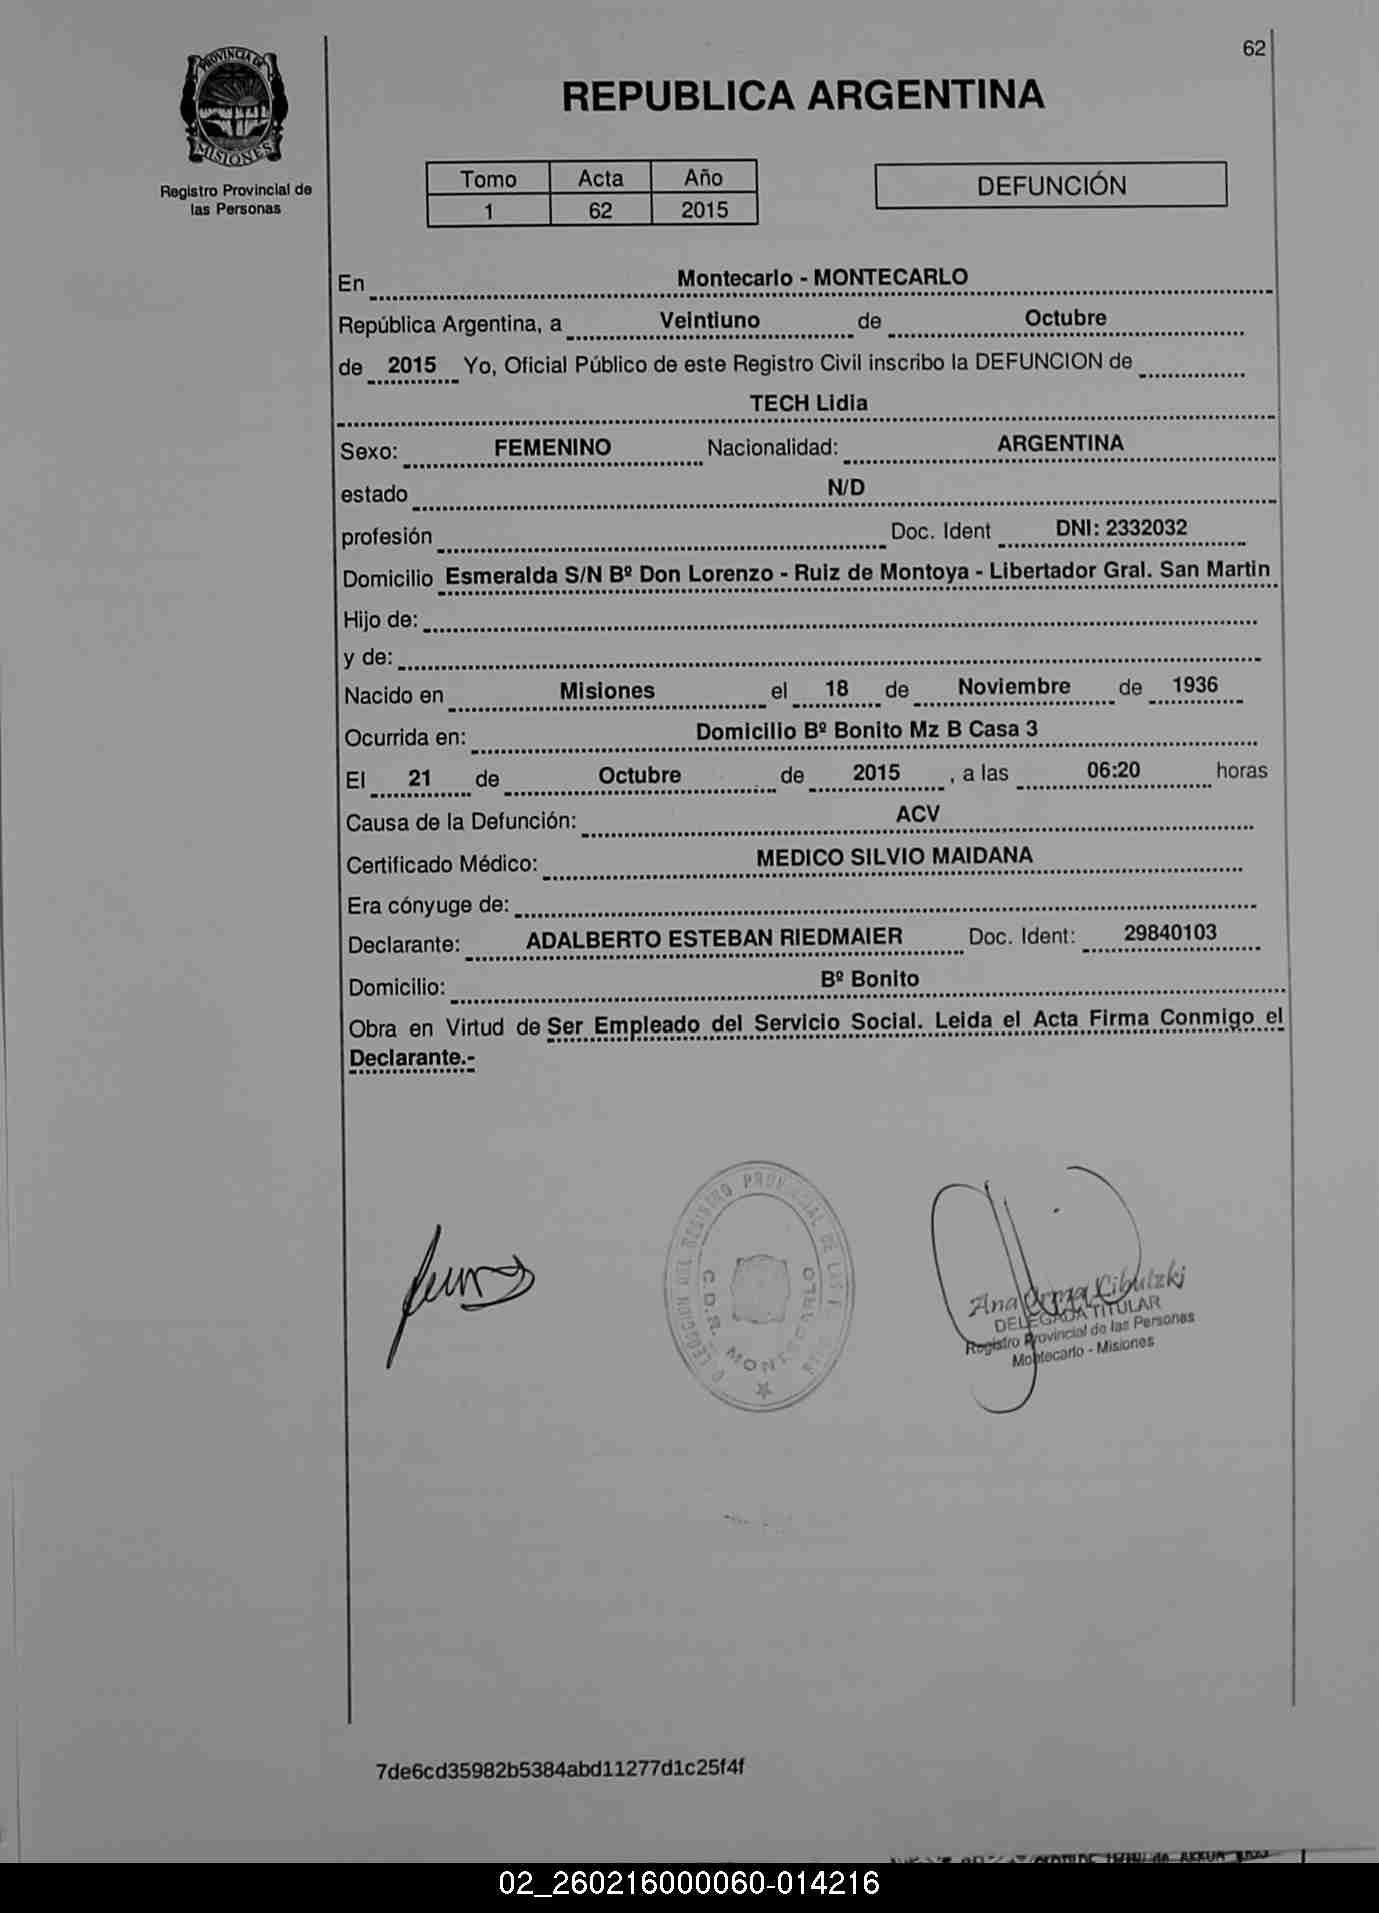 62
PROVINCIA DE
MISIONES
Registro Provincial de
las Personas
REPUBLICA ARGENTINA
Tomo Acta Año
1 62 2015
DEFUNCIÓN
En Montecarlo - MONTECARLO
República Argentina, a Veintiuno de Octubre
de 2015 Yo, Oficial Público de este Registro Civil inscribo la DEFUNCION de
TECH Lidia
Sexo: FEMENINO Nacionalidad: ARGENTINA
estado N/D
profesión Doc. Ident DNI: 2332032
Domicilio Esmeralda S/N Bº Don Lorenzo - Ruiz de Montoya - Libertador Gral. San Martin
Hijo de:
y de:
Nacido en Misiones el 18 de Noviembre de 1936
Ocurrida en: Domicilio Bº Bonito Mz B Casa 3
El 21 de Octubre de 2015 , a las 06:20 horas
Causa de la Defunción: ACV
Certificado Médico: MEDICO SILVIO MAIDANA
Era cónyuge de:
Declarante: ADALBERTO ESTEBAN RIEDMAIER Doc. Ident: 29840103
Domicilio: Bº Bonito
Obra en Virtud de Ser Empleado del Servicio Social. Leida el Acta Firma Conmigo el
Declarante.-
DELEGACION DEL REGISTRO PROVINCIAL DE LAS
C.D.R. MONTECARLO
Ana Cibulzki
DELEGADA TITULAR
Registro Provincial de las Personas
Montecarlo - Misiones
7de6cd35982b5384abd11277d1c25f4f
02_260216000060-014216